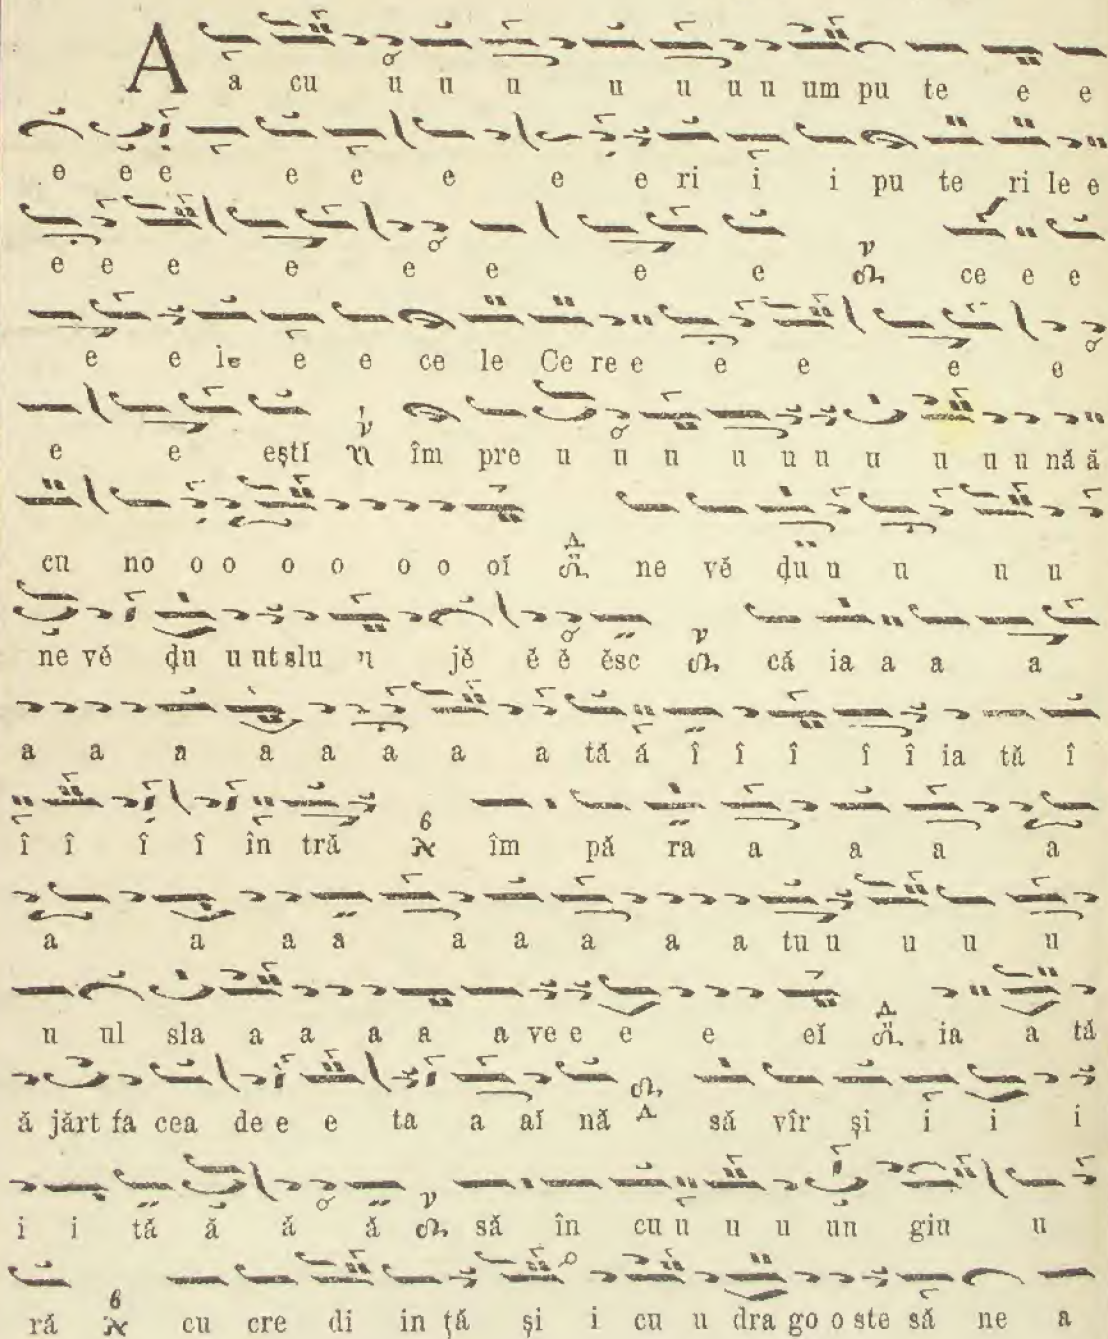 A a cu u u u u u u u um pu te e e
e e e e e e e e ri i i pu te ri le e
e e e e e e e e ce e e
e e le e e ce le Ce re e e e e e
e e eştĭ îm pre u u u u u u u u u u nă ă
cu no o o o o o o oĭ ne vĕ ḑu u u u u
ne vĕ ḑu u unt slu u jĕ ĕ ĕ ĕsc că ia a a a
a a a a a a a a tă ă î î î î î ia tă î
î î î î în tră îm pă ra a a a a
a a a a a a a a a tu u u u u
u ul sla a a a a a ve e e e eĭ ia a tă
ă jărt fa cea de e e ta a aĭ nă să vîr şi i i i
i i tă ă ă ă să în cu u u u un giu u
ră cu cre di in ţă şi i cu u dra go o ste să ne a